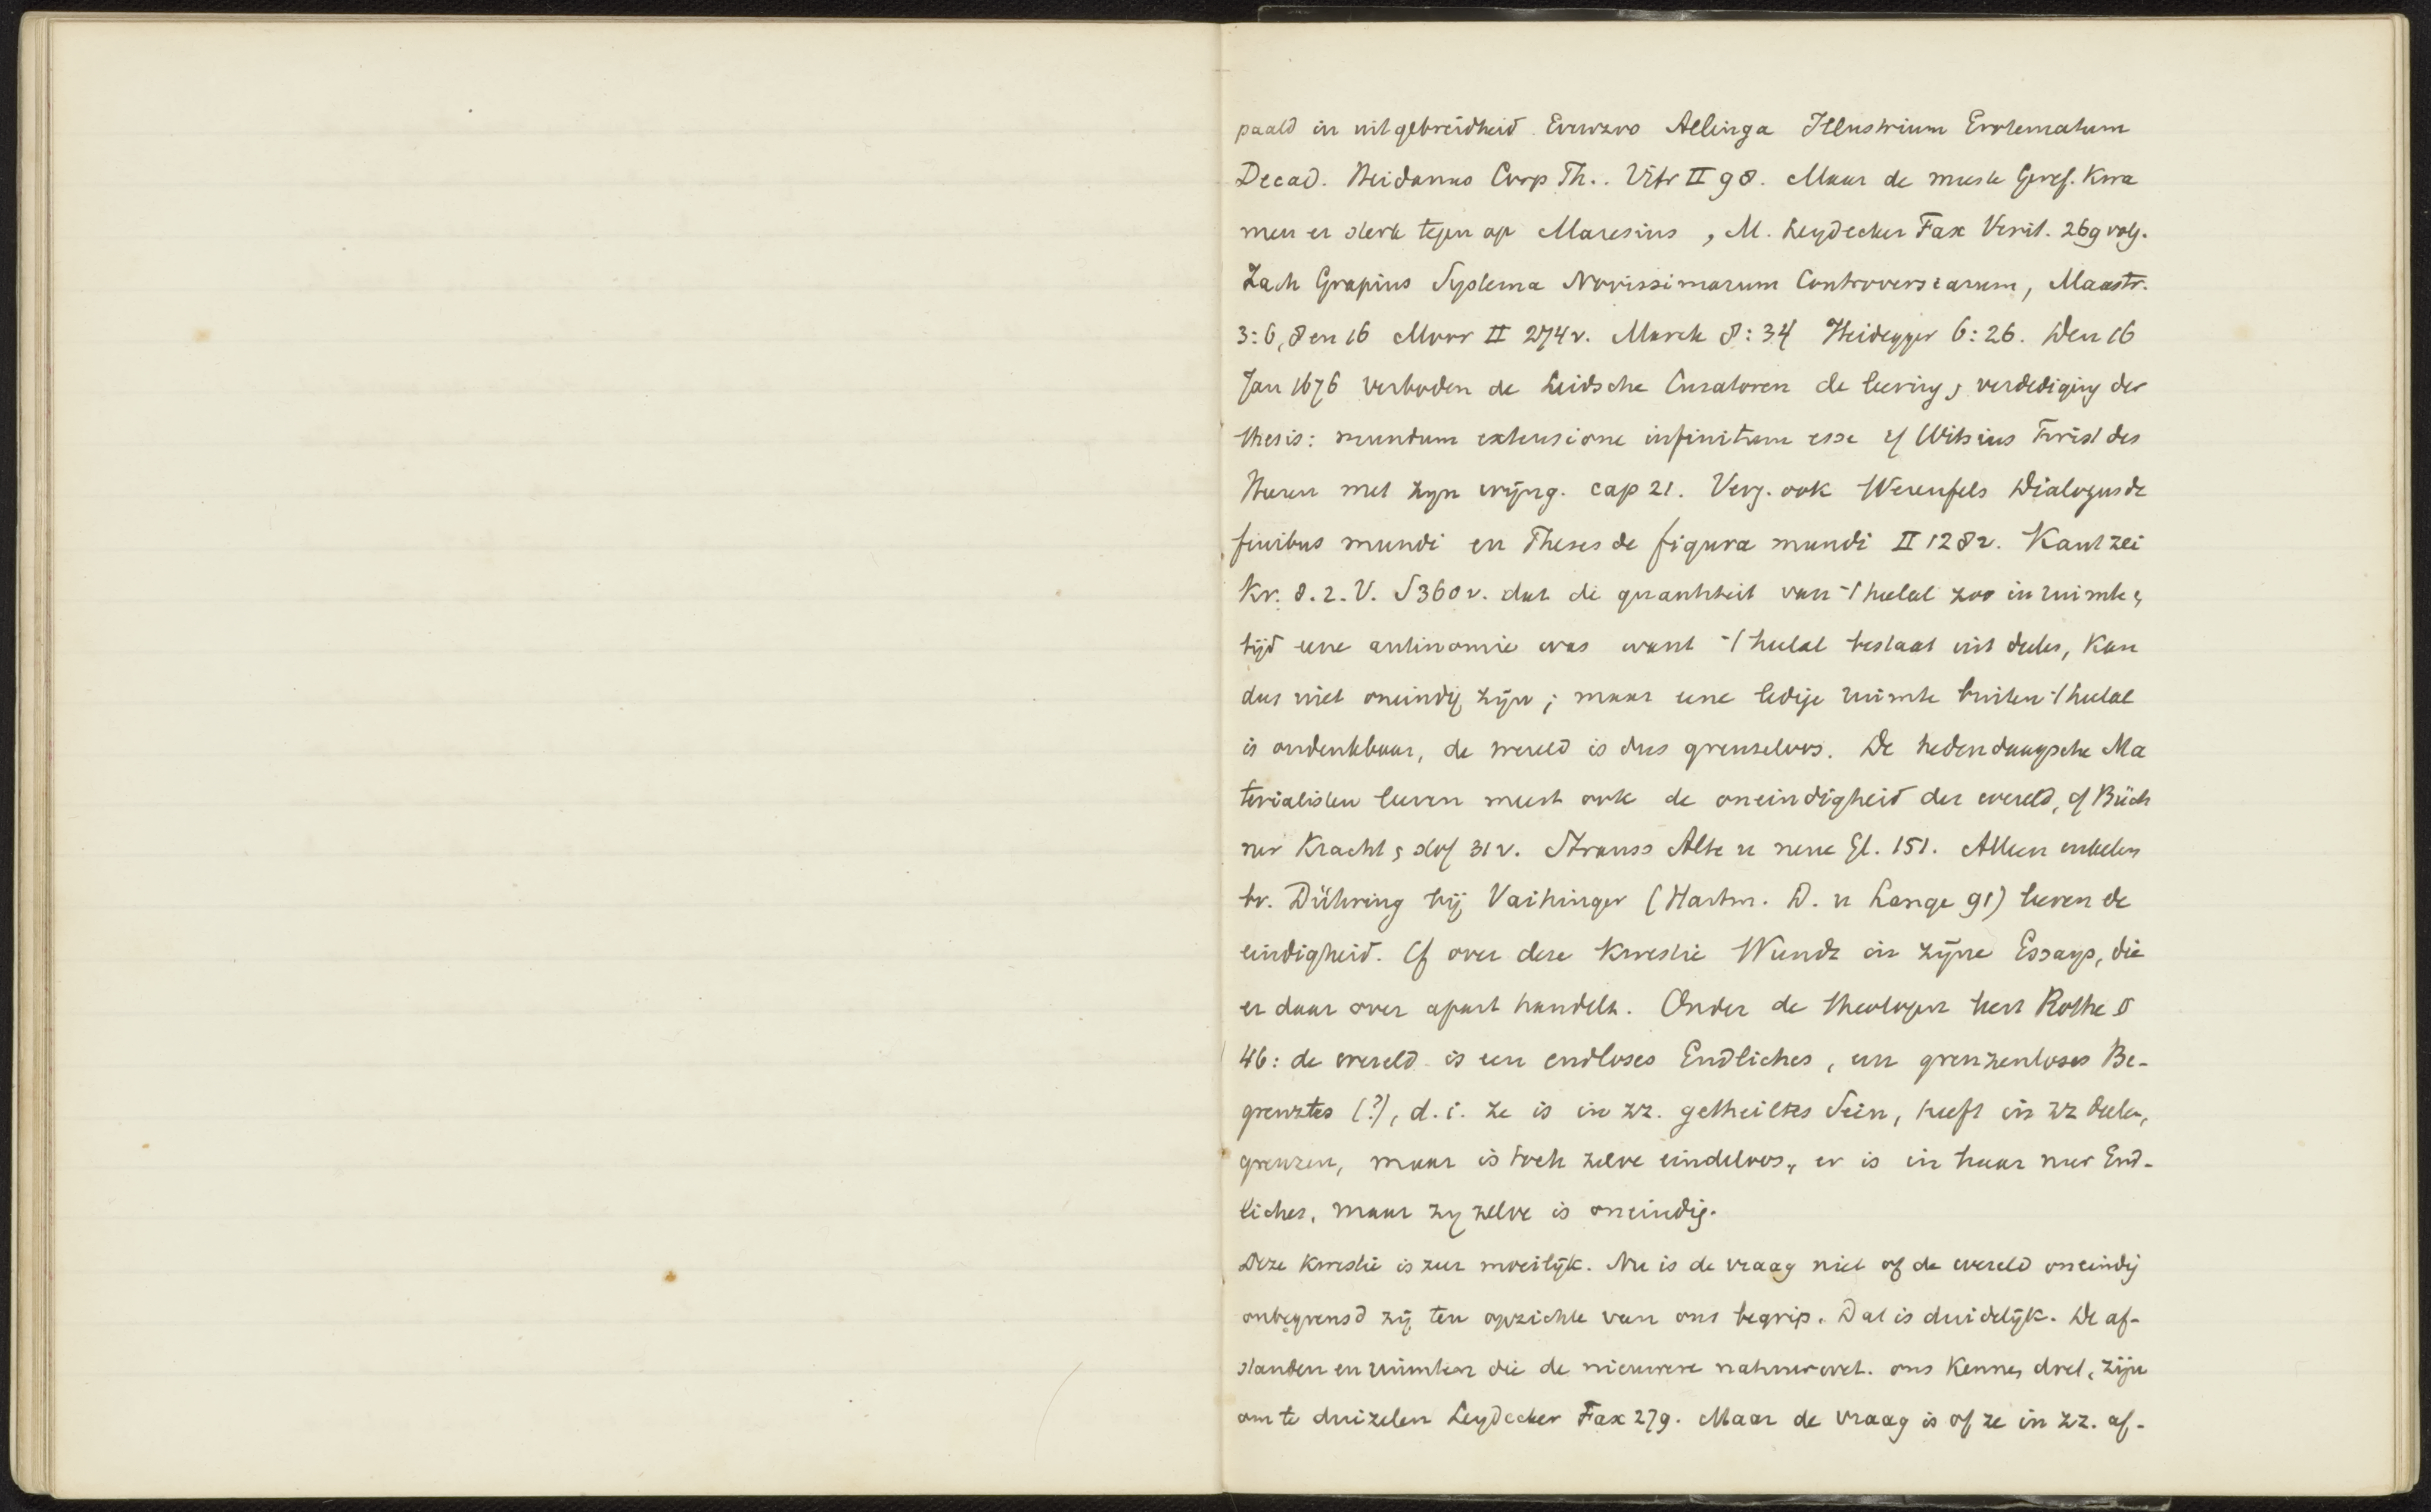 paald in uitgebreidheid. Evenzoo Allinga Illustrium Erotematum
Decad. Heidanus Corp Th.. Vitr II 98. Maar de meeste Geref. kwa
men er sterk tegen op Maresius, M. Leydecker Fax Verit. 269 volg.
Zach Grapius Systema Novissimarum Controversiarum, Maastr.
3:6, 8 en 16 Moor II 274v. Marck 8:34 Heidegger 6:26. Den 16
Jan 1676 verboden de Leidsche Curatoren de leering & verdediging der
thesis: mundum extensione infinitum esse cf Witsius Twist des
Heeren met zyn wijng. cap 21. Verg. ook Werenfels Dialogus de
finibus mundi en Theses de figura mundi II 128v. Kant zei
Kr. d. r. V. S 360v. dat de quantiteit van 't heelal zoo in ruimte &
tijd eene antinomie was want 't heelal bestaat uit deelen, kan
dus niet oneindig zijn; maar eene ledige ruimte buiten 't heelal
is ondenkbaar, de wereld is dus grenseloos. De hedendaagsche Ma
terialisten leeren meest ook de oneindigheid der wereld, cf Büch
ner Kracht & stof 31v. Strauss Alte u neue Gl. 151. Alleen enkelen
bv. Dühring bij Vaihinger (Hartm. D. u Lange 91) leeren de
eindigheid. Cf over deze kwestie Wundt in zijne Essays, die
er daar over apart handelt. Onder de theologen leert Rothe §
46: de wereld is een endloses Endliches, een grenzenloses Be-
grenztes (?), d.i. ze is in zz. getheiltes Sein, heeft in zz deelen,
grenzen, maar is toch zelve eindeloos, er is in haar nur End-
liches, maar zy zelve is oneindig.
Deze kwestie is zeer moeilijk. Nu is de vraag niet of de wereld oneindig
onbegrensd zij ten opzichte van ons begrip. Dat is duidelijk. De af-
standen en ruimten die de nieuwere natuurwet. ons kennen doet, zijn
om te duizelen Leydecker Fax 279. Maar de vraag is of ze in zz. af-